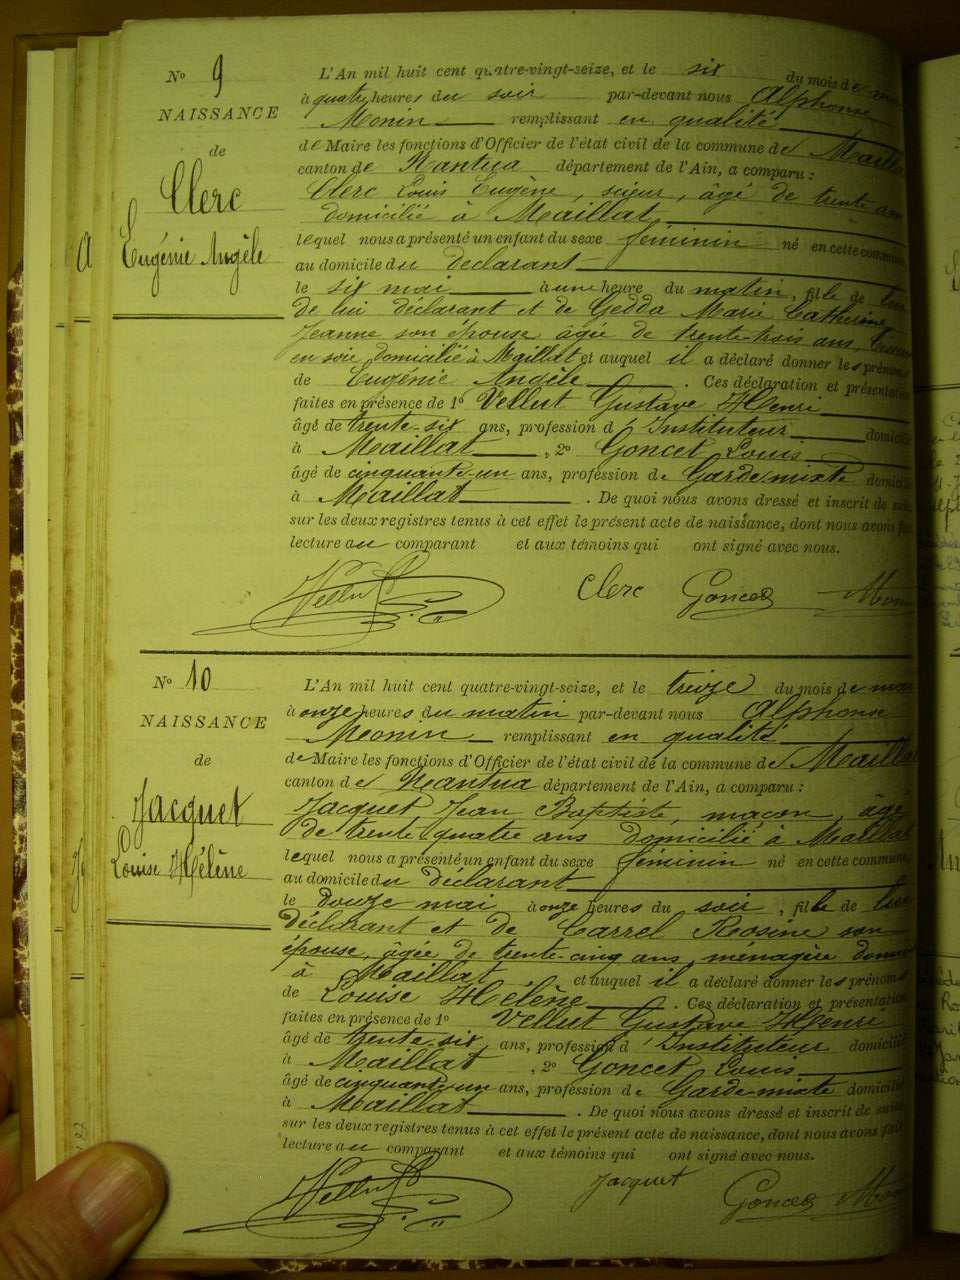 N° 9
NAISSANCE
de
Clerc
Eugénie Angèle
L'An mil huit cent quatre-vingt-seize, et le six du mois de
à quatre heures du soir par-devant nous Alphonse
Monin remplissant en qualité
de Maire les fonctions d'Officier de l'état civil de la commune de Maillat
canton de Nantua département de l'Ain, a comparu :
Clerc Louis Eugène, scieur, âgé de trente ans
domicilié à Maillat
lequel nous a présenté un enfant du sexe féminin né en cette commune
au domicile du déclarant
le six mai à une heure du matin, fille de
de lui déclarant et de Gedda Marie Catherine
Jeanne son épouse âgée de trente-trois ans,
en soie domicilié à Maillat et auquel il a déclaré donner les prénoms
de Eugénie Angèle . Ces déclaration et présentation
faites en présence de 1° Vellut Gustave Henri
âgé de trente-six ans, profession d'Instituteur domicilié
à Maillat, 2° Goncet Louis
âgé de cinquante-un ans, profession de Garde-mixte domicilié
à Maillat . De quoi nous avons dressé et inscrit de suite
sur les deux registres tenus à cet effet le présent acte de naissance, dont nous avons fait
lecture au comparant et aux témoins qui ont signé avec nous.
Vellut Clerc Goncet Monin
N° 10
NAISSANCE
de
Jacquet
Louise Hélène
L'An mil huit cent quatre-vingt-seize, et le treize du mois de mai
à onze heures du matin par-devant nous Alphonse
Monin remplissant en qualité
de Maire les fonctions d'Officier de l'état civil de la commune de Maillat
canton de Nantua département de l'Ain, a comparu :
Jacquet Jean Baptiste, maçon, âgé
de trente-quatre ans domicilié à Maillat
lequel nous a présenté un enfant du sexe féminin né en cette commune
au domicile du déclarant
le douze mai à onze heures du soir, fille de lui
déclarant et de Carrel Rosine son
épouse, âgée de trente-cinq ans, ménagère
à Maillat et auquel il a déclaré donner les prénoms
de Louise Hélène . Ces déclaration et présentation
faites en présence de 1° Vellut Gustave Henri
âgé de trente-six ans, profession d'Instituteur domicilié
à Maillat, 2° Goncet Louis
âgé de cinquante-un ans, profession de Garde-mixte domicilié
à Maillat . De quoi nous avons dressé et inscrit de suite
sur les deux registres tenus à cet effet le présent acte de naissance, dont nous avons fait
lecture au comparant et aux témoins qui ont signé avec nous.
Vellut Jacquet Goncet Monin